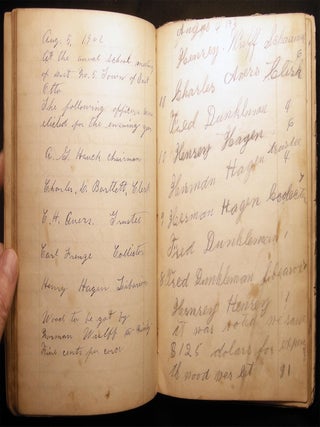 Aug. 5, 1902
At the annual school meeting
of dist. No. 5 Town of East
Otto
The following officers were
elected for the ensuing year
A. G. Hauch chairman
Charles, C. Bartlett, Clerk
E. H. Avers. Trustee
Carl Frenze Collector
Henry Hagen Librarian
Wood to be got by
Herman Wulff at Ninty
Nine cents per cord
Henrey Wolff
11 Charles Avers Clerk
Fred Dunkleman 9
10 Henrey Hagen 6
Herman Hagen trustee
9 Herman Hagen
Fred Dunkleman 1
8 Fred Dunkleman
Henrey Henrey 1
it was voted we raise
$125 dolars for
wood was let 91